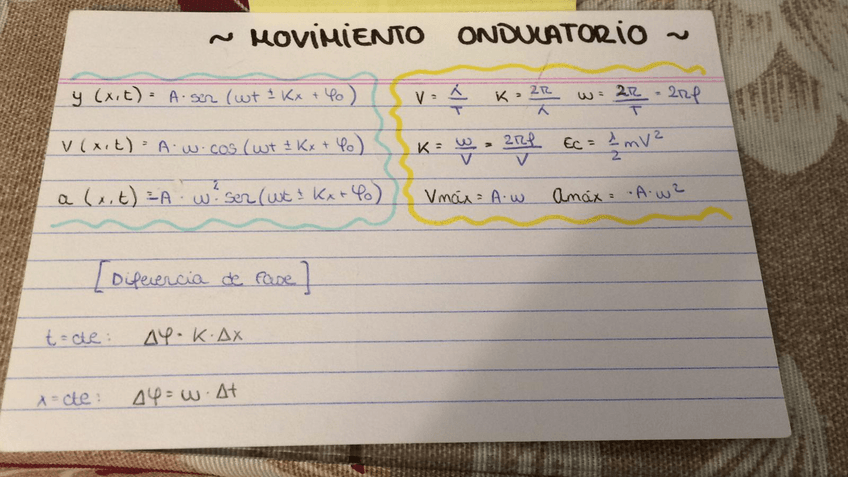 ~ MOVIMIENTO ONDULATORIO ~
y (x,t) = A · sen (wt ± Kx + φ₀)
V (x,t) = A · w · cos (wt ± Kx + φ₀)
a (x,t) = -A · w² · sen (wt ± Kx + φ₀)
V = λ/T K = 2π/λ w = 2π/T = 2πf
K = w/V = 2πf/V Ec = 1/2 mV²
Vmáx = A · w amáx = -A · w²
[Diferencia de Fase]
t = cte: Δφ = K · Δx
x = cte: Δφ = w · Δt